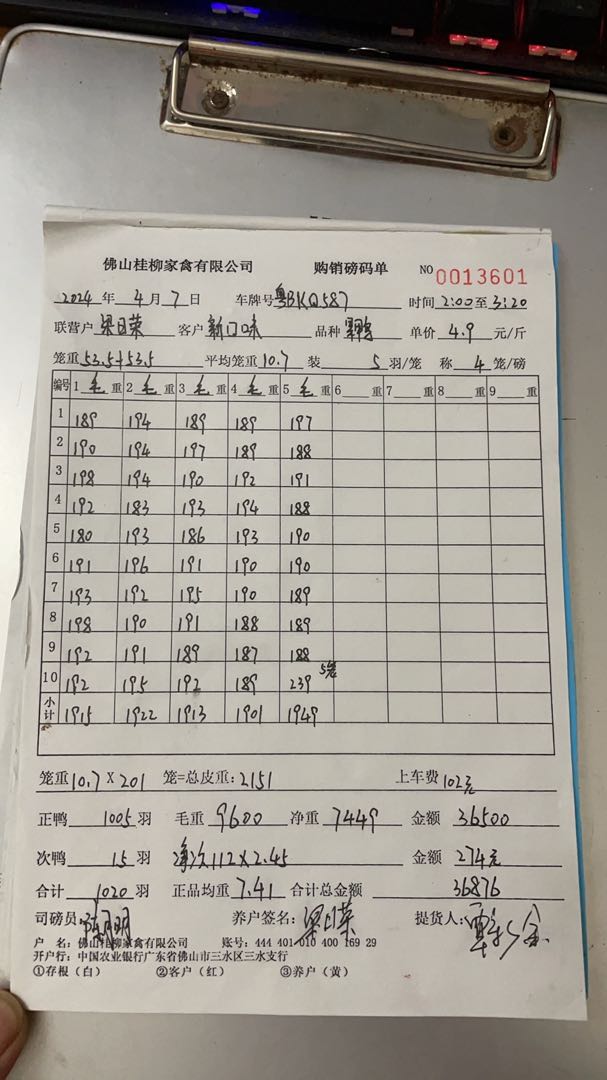 佛山桂柳家禽有限公司 购销磅码单 NO 0013601
2024 年 4 月 7 日 车牌号 粤BKQ587 时间 2:00 至 3:20
联营户 梁日荣 客户 新口味 品种 单价 4.9 元/斤
笼重 53.5+53.5 平均笼重 10.7 装 5 羽/笼 称 4 笼/磅
编号 1 毛 重 2 毛 重 3 毛 重 4 毛 重 5 毛 重 6 重 7 重 8 重 9 重
1 189 194 189 189 197
2 190 194 197 189 188
3 198 194 190 192 191
4 192 183 193 194 188
5 180 193 186 193 190
6 191 196 191 190 190
7 193 192 195 190 189
8 198 190 191 188 189
9 192 191 189 187 188
10 192 195 192 189 239 5笼
小计 1915 1922 1913 1901 1949
笼重 10.7 X 201 笼=总皮重: 2151 上车费 102元
正鸭 1005 羽 毛重 9600 净重 7449 金额 36500
次鸭 15 羽 净次112 X 2.45 金额 274元
合计 1020 羽 正品均重 7.41 合计总金额 36876
司磅员: 养户签名: 梁日荣 提货人:
户 名: 佛山桂柳家禽有限公司 账号: 444 401 010 400 169 29
开户行: 中国农业银行广东省佛山市三水区三水支行
①存根(白) ②客户(红) ③养户(黄)